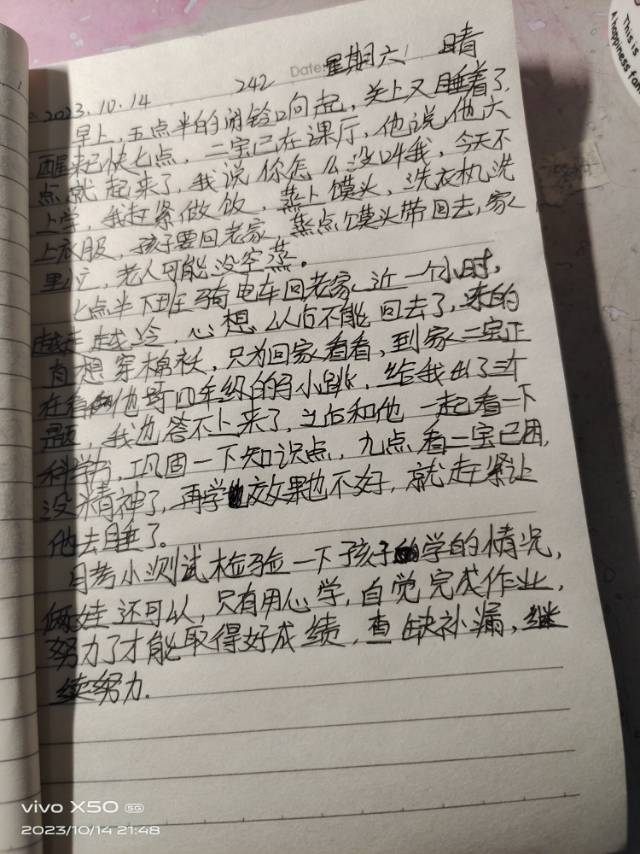 This is
a happiness fam
Date:
2023.10.14 242 星期六 晴
早上,五点半的闹铃响起,关上又睡着了,
醒来已快七点,二宝已在课厅,他说他六
点就起来了,我说你怎么没叫我,今天不
上学,我赶紧做饭,蒸上馍头,洗衣机洗
上衣服,孩子要回老家,蒸点馍头带回去,家
里忙,老人可能没空蒸。
七点半下班骑电车回老家近一个小时,
越走越冷,心想以后不能回去了,真的
有想穿棉袄,只为回家看看,到家二宝正
在看他哥四年级的小跳,给我出了三个
题,我也答不上来了,当后和他一起看一下
科学书,巩固一下知识点,九点看二宝已困,
没精神了,再学效果也不好,就赶紧让
他去睡了。
月考小测试检验一下孩子学的情况,
俩娃还可以,只有用心学,自觉完成作业,
努力了才能取得好成绩,查缺补漏,继
续努力.
vivo X50 5G
2023/10/14 21:48